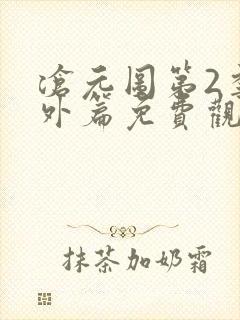 滄元图第2季
外篇免費觀
抹茶加奶霜